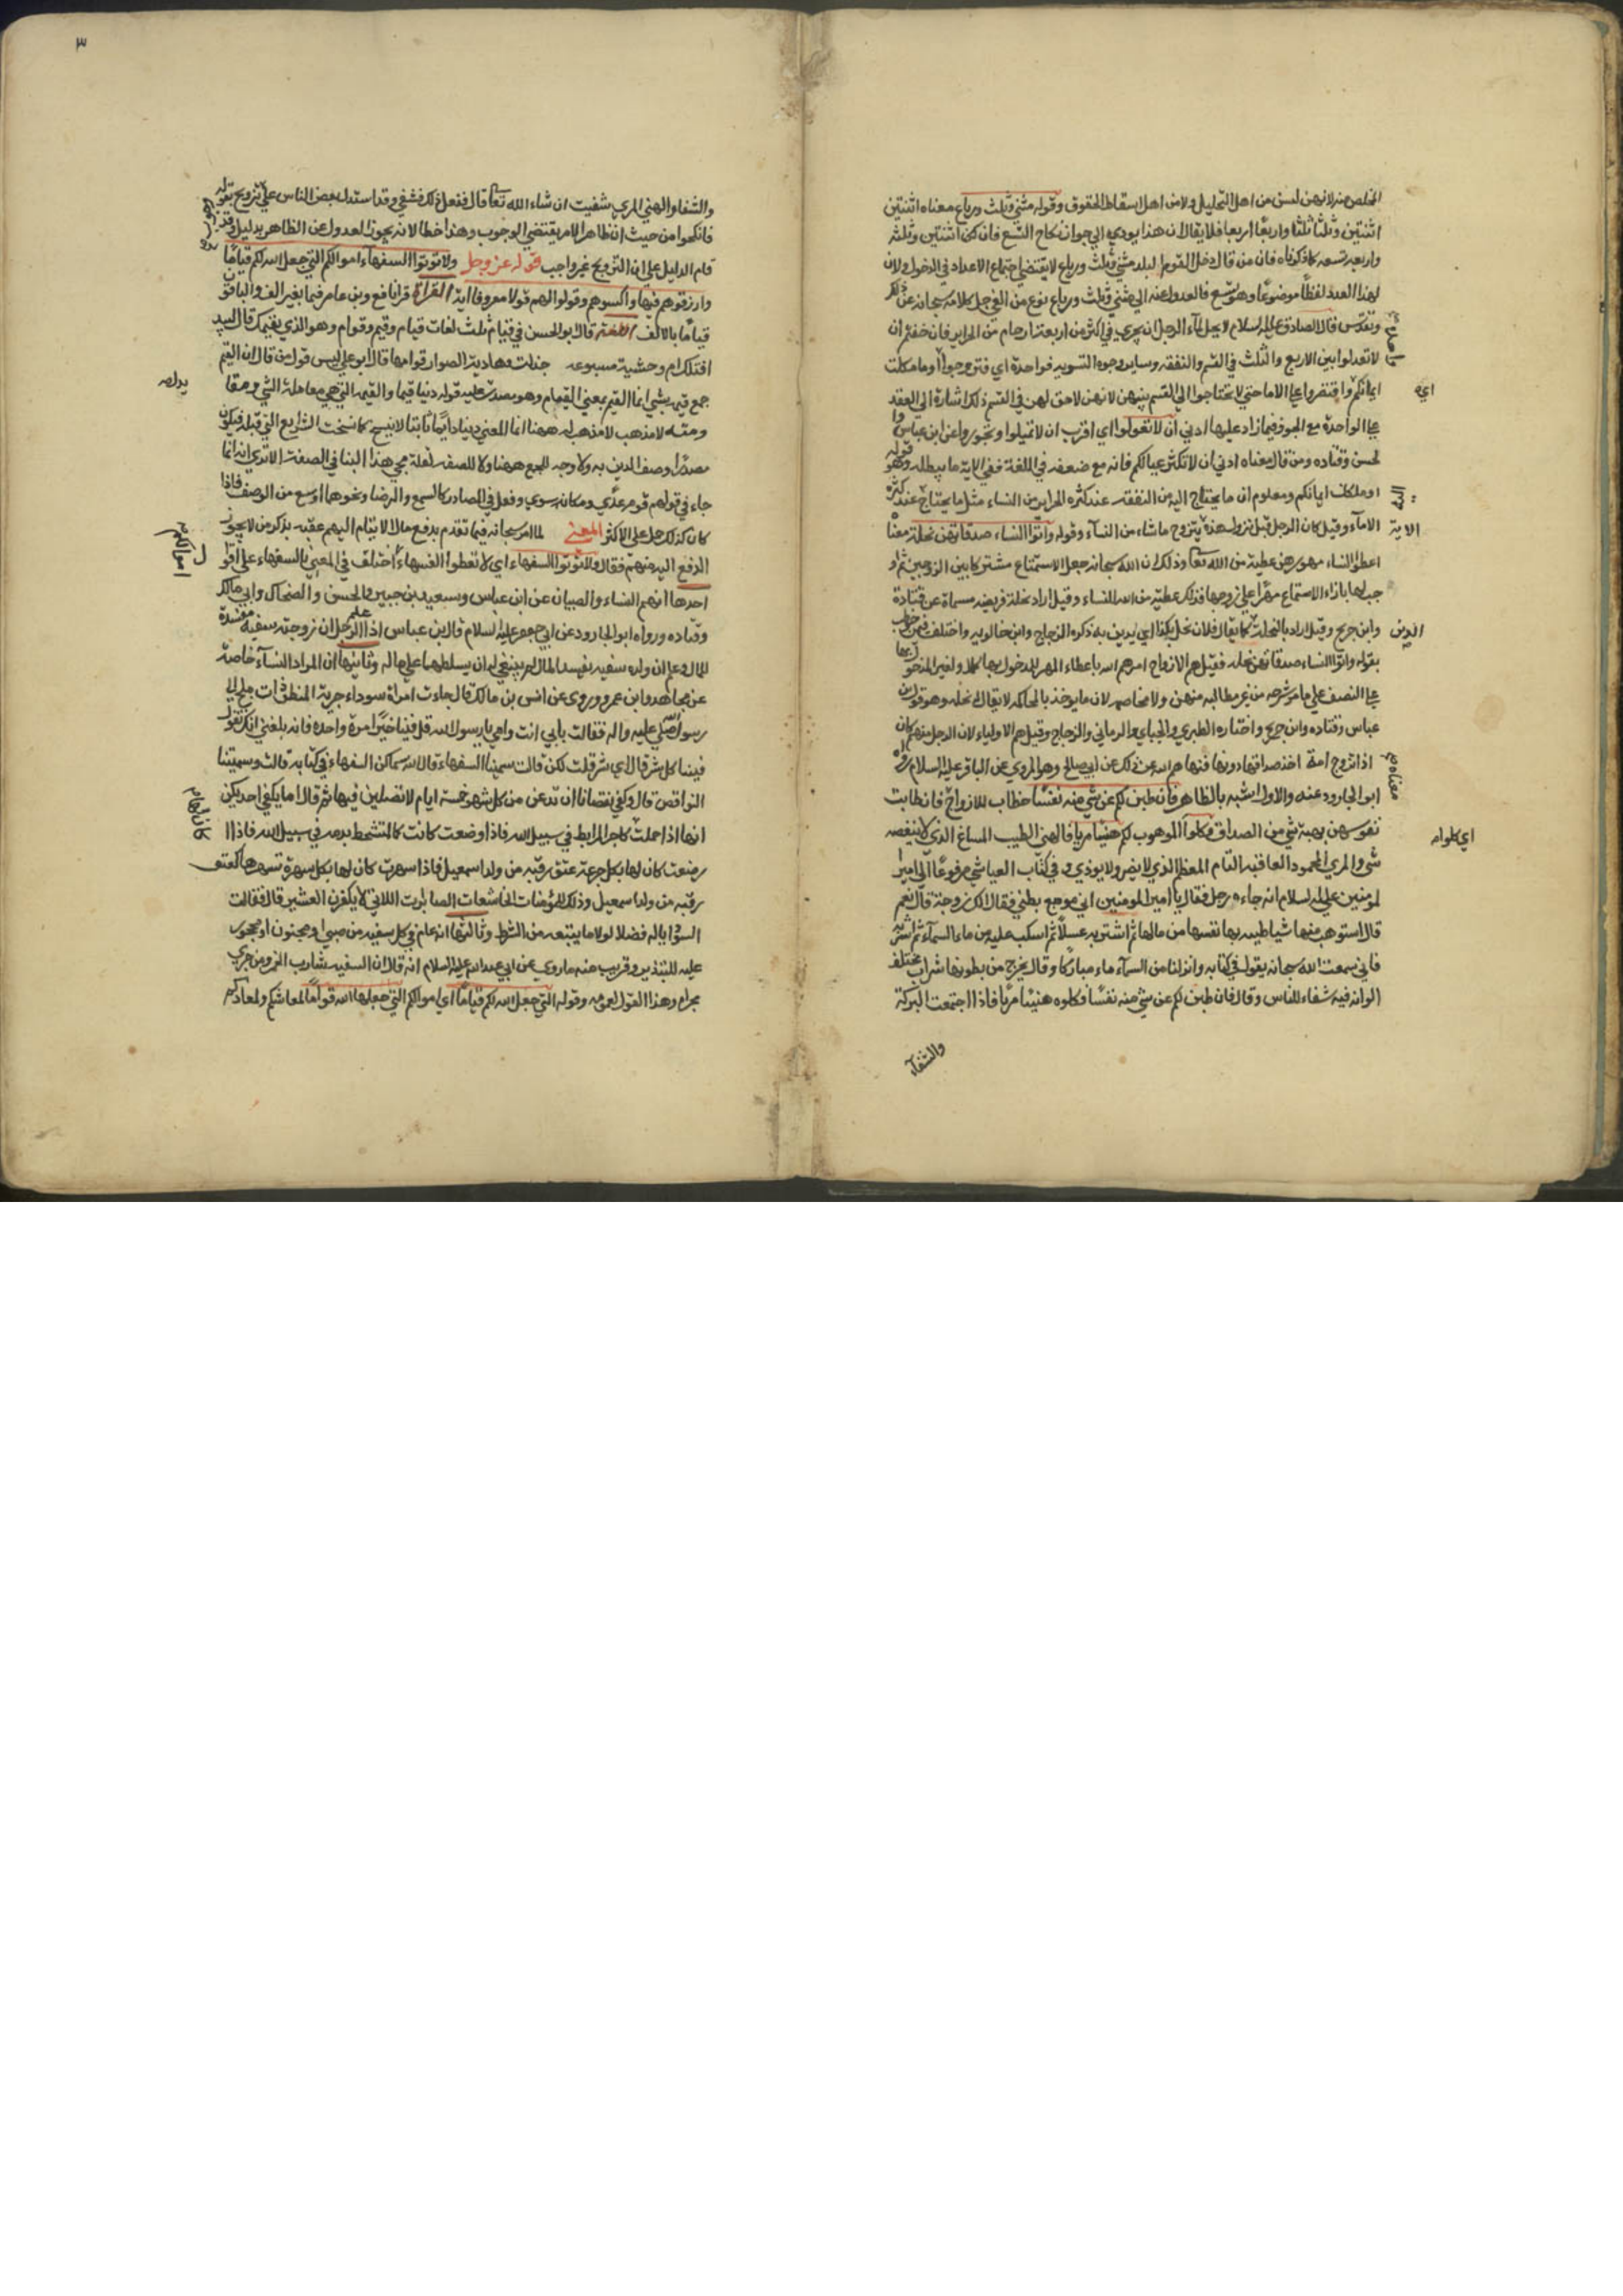 التخلص منه لانهن ليس من اهل التحليل ولا من اهل اسقاط الحقوق وقوله مثنى وثلث ورباع معناه اثنتين
اثنتين وثلثا ثلثا واربعا اربعا فلا يقال ان هذا يودي الى جواز نكاح التسع فان كن اثنتين وثلثه
واربعه تسعه كما ذكرناه فان من قال دخل القوم البلد مثنى وثلث ورباع لا يقتضي اجتماع الاعداد في الدخول ولان
لهذا العدد لفظا موضوعا وهو تسع فالعدول عنه الى مثنى وثلث ورباع نوع من العي جل كلامه سبحانه عن ذلك
وتقدس قال الصادق عليه السلام لا يحل لماء الرجل ان يجري في اكثر من اربعة ارحام من الحراير فان خفتم ان
لا تعدلوا بين الاربع والثلث في القسم والنفقه وساير وجوه التسويه فواحدة اي فتزوجوا او ما ملكت
ايمانكم واقتصروا على الاما حتى لا تحتاجوا الى القسم بينهن لانهن لا حق لهن في القسم ذلك اشارة الى العقد
على الواحدة مع الجور فيما زاد عليها ادنى ان لا تعولوا اي اقرب ان لا تميلوا وتجوروا عن ابن عباس وا
لحسن وقتاده ومن قال معناه ادنى ان لا تكثر عيالكم فانه مع ضعفه في اللغة ففي الاية ما يبطله وهو قوله
او ملكات ايمانكم ومعلوم ان ما يحتاج اليه من النفقه عند كثره الحراير من النساء مثل ما يحتاج عند كثرة
الاماء وقيل كان الرجل قبل نزول هذه يتزوج ما شاء من النساء وقوله واتوا النساء صدقاتهن نحلة معناه
اعطوا النساء مهورهن عطية من الله تعا وذلك ان الله سبحانه جعل الاستمتاع مشتركا بين الزوجين ثم او
جب لها بازاء الاستمتاع مهرا على زوجها فذلك عطيه من الله للنساء وقيل اراد نحلة فريضه مسماة عن قتادة
وابن جريج وقيل اراد بالنحلة كما يقال فلان نحل بكذا اي يدين به ذكره الزجاج وابن خالويه واختلف فيمن خوطب
بقوله واتوا النساء صدقاتهن نحله فقيل هم الازواج امرهم الله باعطاء المهر للمدخول بها كملا ولغير المدخول بها
على النصف على ما مر شرحه من غير مطالبه منهن ولا مخاصمه لان ما يوخذ بالمحاكمه لا يقال له نحله وهو قول ابن
عباس وقتاده وابن جريج واختاره الطبري والجباي والرماني والزجاج وقيل هم الاولياء لان الرجل منهم كان
اذا تزوج امة اخذ صداقها دونها فنهاهم الله عن ذلك عن ابي صالح وهو المروي عن الباقر عليه السلام رواه
ابو الجارود عنه والاول اشبه بالظاهر فان طبن لكم عن شي منه نفسا خطاب للازواج فان طابت
نفوسهن بهبة شي من الصداق فكلوا الموهوب لكم هنيئا مريا فالهني الطيب المساغ الذي لا ينغصه
شي والمري المحمود العاقبه التام المهضم الذي لا يضر ولا يوذي وفي كتاب العياشي مرفوعا الى امير
لمومنين عليه السلام انه جاءه رجل فقال يا امير المومنين اني موجع بطني فقال الك زوجة قال نعم
قال استوهب منها شيا طيبه بها نفسها من مالها ثم اشتر به عسلا ثم اسكب عليه من ماء السماء ثم اشربه
فاني سمعت الله سبحانه يقول في كتابه وانزلنا من السماء ماء مباركا وقال يخرج من بطونها شراب مختلف
الوانه فيه شفاء للناس وقال فان طبن لكم عن شي منه نفسا فكلوه هنيئا مريا فاذا اجتمعت البركة
والشفاء
اي
الاية
الدين
معناه
اي كلوا
٣
والشفا والهني المري شفيت ان شاء الله تعا قال ففعل ذلك فشفي وقد استدل بعض الناس على تزويج بقوله
فانكحوا من حيث ان ظاهر الامر يقتضي الوجوب وهذا خطا لانه يجوز العدول عن الظاهر بدليل وقد
قام الدليل على ان التزويج غير واجب قوله عز وجل ولا توتوا السفهاء اموالكم التي جعل الله لكم قياما
وارزقوهم فيها واكسوهم وقولوا لهم قولا معروفا اية القراة قرا نافع وبن عامر قيما بغير الف والباقون
قياما بالالف اللغة قال ابو الحسن في قيام ثلث لغات قيام وقيم وقوام وهو الذي يقيمك قال لبيد
افتلك ام وحشية مسبوعه خذلت وهادية الصوار قوامها قال ابو علي ليس قول من قال ان القيم
جمع قيمه بشي انما القيم بمعنى القيام وهو مصدر عليه قوله دينا قيما والقيمه التي هي معاملة الشي ومقا
ومته لا مذهب لا مذهب له ههنا انما المعنى دينا دايما ثابتا لا ينسخ كما نسخت الشرايع التي قبله فيكون
مصدرا وصف الدين به ولا وجه للجمع ههنا ولا للصفه لقلة مجي هذا البنا في الصفة الا ترى انه انما
جاء في قولهم قوم عدى ومكان سوى وفعل في المصادر كالسمع والرضا ونحوهما اوسع من الوصف فاذا
كان كذلك حمل على الاكثر المعنى لما امر سبحانه فيما تقدم بدفع مال الايتام اليهم عقبه بذكر من لا يجوز
الدفع اليه منهم فقال ولا توتوا السفهاء اي لا تعطوا السفهاء اختلف في المعنى بالسفهاء على اقوا
احدها انهم النساء والصبيان عن ابن عباس وسعيد بن جبير والحسن والضحاك وابي مالك
وقتاده ورواه ابو الجارود عن ابي جعفر عليه السلام قال بن عباس اذا علم الرجل ان زوجته سفيه مفسدة
للمال وعلم ان ولده سفيه يفسد المال لم ينبغي له ان يسلطهما على ماله وثانيها ان المراد النساء خاصة
عن مجاهد وابن عمر وروى عن انس بن مالك قال جاءت امراة سوداء جرية المنطق ذات ملح الى
رسول الله صلى عليه واله فقالت بابي انت وامي يا رسول الله قل فينا خيرا مرة واحده فانه بلغني انك تقول
فينا كل شر قال اي شر قلت لكن قالت سميتنا السفهاء قال الله سماكن السفهاء في كتابه قالت وسميتنا
النواقص قال وكفى نقصانا ان تدعن من كل شهر خمسة ايام لا تصلين فيها ثم قال اما يكفي احديكن
انها اذا حملت كاجر المرابط في سبيل الله فاذا وضعت كانت كالمتشحط بدمه في سبيل الله فاذا ا
رضعت كان لها بكل جرعة عتق رقبه من ولد اسمعيل فاذا سهرت كان لها بكل سهرة تسهرها كعتق
رقبه من ولد اسمعيل وذلك للمؤمنات الخاشعات الصابرات اللاتي لا يكفرن العشير قال فقالت
السوداء يا له فضلا لولا ما يتبعه من الشرط وثالثها انه عام في كل سفيه من صبي او مجنون او محجور
عليه للتبذير وقريب منه ما روي عن ابي عبد الله عليه السلام انه قال ان السفيه شارب الخمر ومن جرى
مجراه وهذا القول اعم وقوله التي جعل الله لكم قياما اي اموالكم التي جعلها الله قواما لمعاشكم ولمعادكم
اموالكم
كان لها